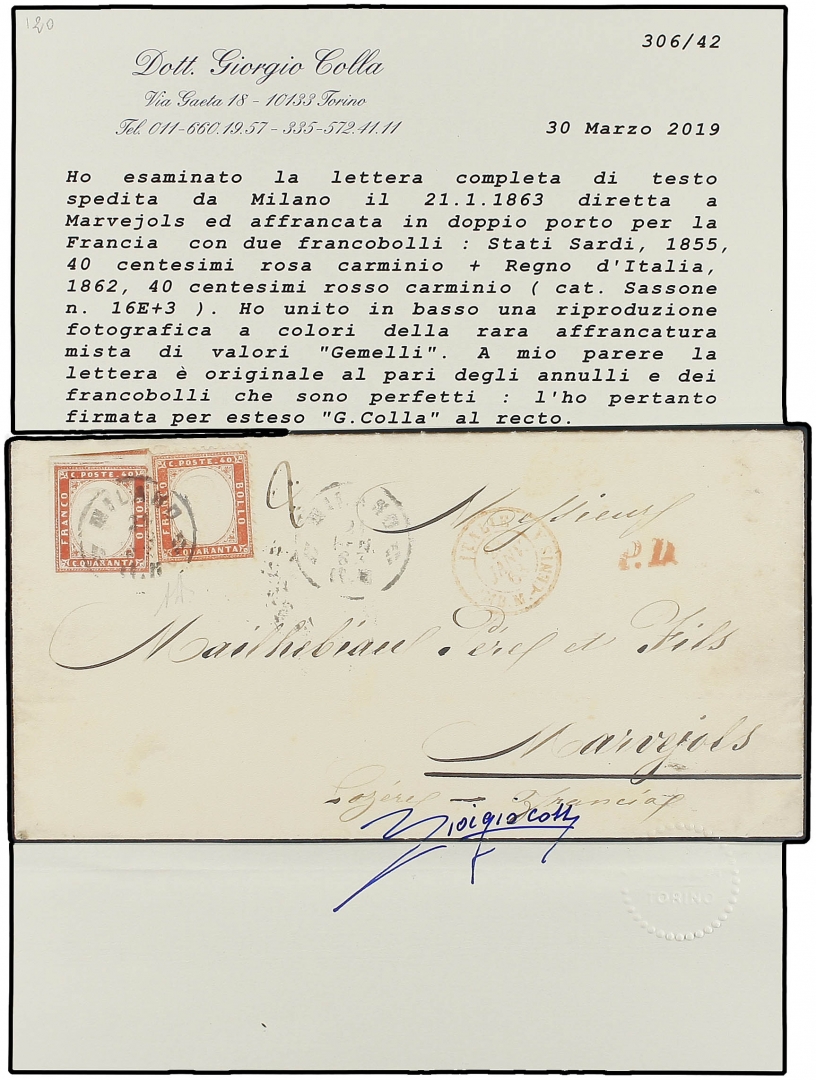 120
306/42
Dott. Giorgio Colla
Via Gaeta 18 - 10133 Torino
Tel. 011-660.19.57 - 335-572.41.11
30 Marzo 2019
Ho esaminato la lettera completa di testo
spedita da Milano il 21.1.1863 diretta a
Marvejols ed affrancata in doppio porto per la
Francia con due francobolli : Stati Sardi, 1855,
40 centesimi rosa carminio + Regno d'Italia,
1862, 40 centesimi rosso carminio ( cat. Sassone
n. 16E+3 ). Ho unito in basso una riproduzione
fotografica a colori della rara affrancatura
mista di valori "Gemelli". A mio parere la
lettera è originale al pari degli annulli e dei
francobolli che sono perfetti : l'ho pertanto
firmata per esteso "G.Colla" al recto.
C. POSTE. 40
FRANCO
BOLLO
C. QUARANTA
C. POSTE. 40
FRANCO
BOLLO
C. QUARANTA
MILANO
2
MILANO
Messieurs
ITALIE
P.D.
Mailhebiau Père et Fils
Marvejols
Lozére - Francia
Giorgio Colla
TORINO